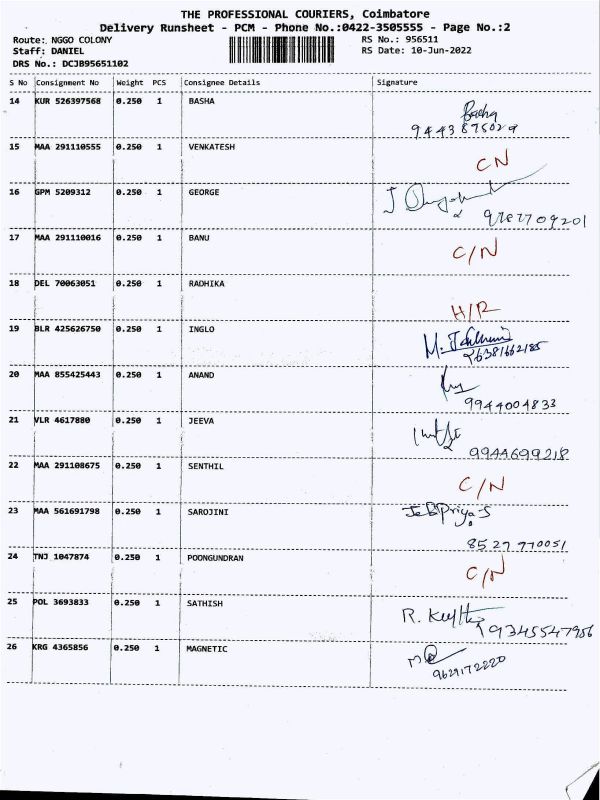 THE PROFESSIONAL COURIERS, Coimbatore
Delivery Runsheet - PCM - Phone No.:0422-3505555 - Page No.:2
Route: NGGO COLONY RS No.: 956511
Staff: DANIEL RS Date: 10-Jun-2022
DRS No.: DCJB95651102
S No Consignment No Weight PCS Consignee Details Signature
14 KUR 526397568 0.250 1 BASHA Basha
15 MAA 291110555 0.250 1 VENKATESH CN
16 GPM 5209312 0.250 1 GEORGE
9787709201
17 MAA 291110016 0.250 1 BANU C/N
18 DEL 70063051 0.250 1 RADHIKA H/R
19 BLR 425626750 0.250 1 INGLO
6381662185
20 MAA 855425443 0.250 1 ANAND
9944004833
21 VLR 4617880 0.250 1 JEEVA
9944699218
22 MAA 291108675 0.250 1 SENTHIL C/N
23 MAA 561691798 0.250 1 SAROJINI JebPriya.S
8527970051
24 TNJ 1047874 0.250 1 POONGUNDRAN C/N
25 POL 3693833 0.250 1 SATHISH
9345547956
26 KRG 4365856 0.250 1 MAGNETIC
9629172220